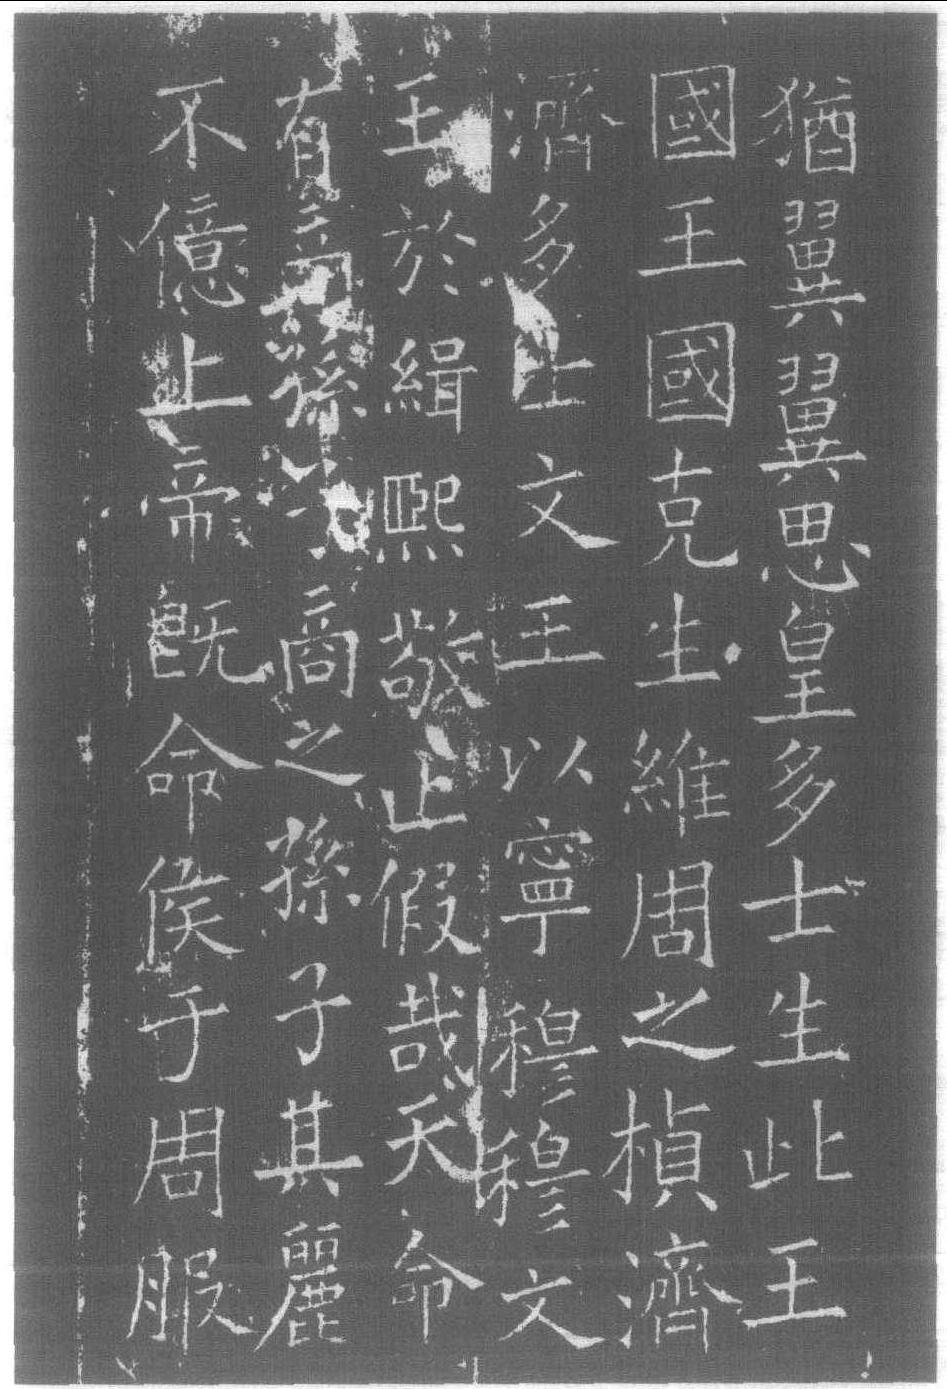 猶翼翼思皇多士生此王
國王國克生維周之楨濟
濟多士文王以寧穆穆文
王於緝熙敬止假哉天命
有商孫商之孫子其麗
不億上帝既命侯于周服